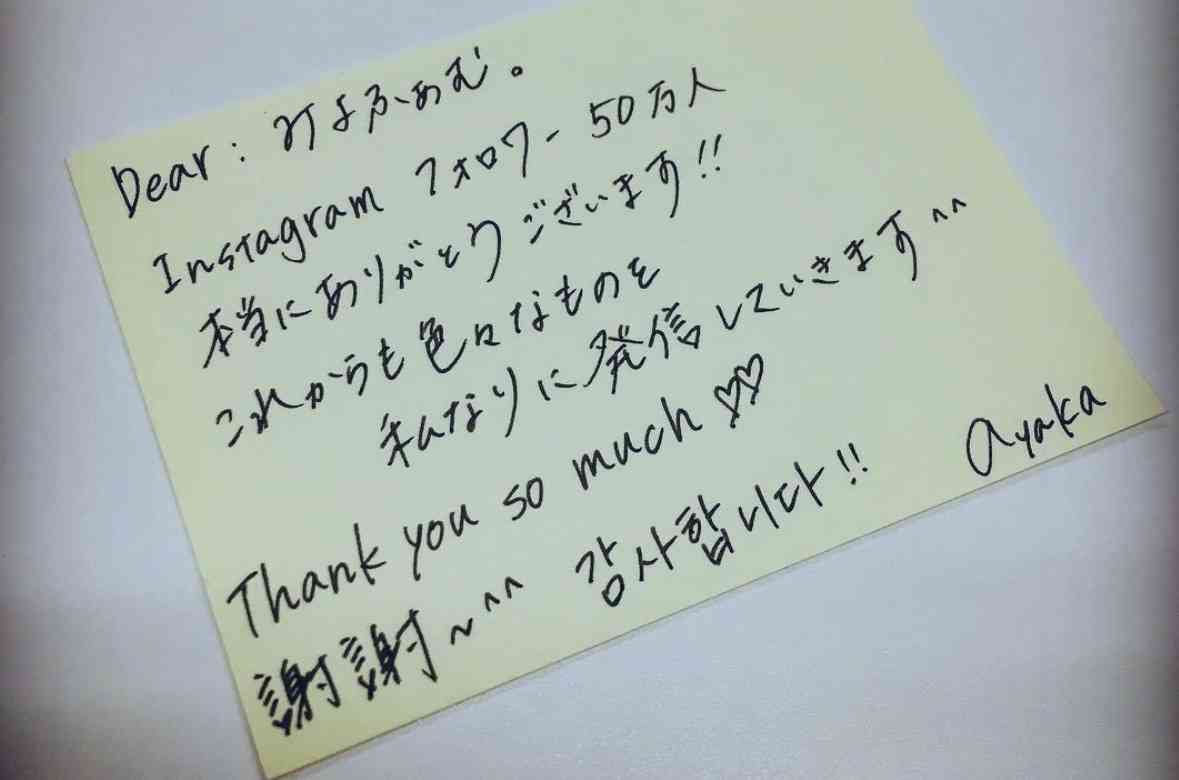 Dear : みよふぁむ。
Instagram フォロワー 50万人
本当にありがとうございます!!
これからも色々なものを
私なりに発信していきます^^
Thank you so much ♡♡
謝謝~^^ 감사합니다!!
Ayaka